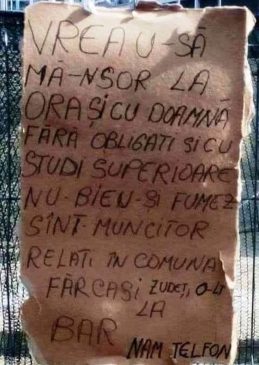 VREAU-SĂ
MĂ-NSOR LA
ORAȘICU DOAMNĂ
FĂRĂ OBLIGATI ȘICU
STUDI SUPERIOARE
NU-BIEU-ȘI FUMEZ
SÎNT-MUNCITOR
RELATI ÎN COMUNA
FĂRCAȘI JUDEȚ, OLT
LA
BAR
NAM TELFON